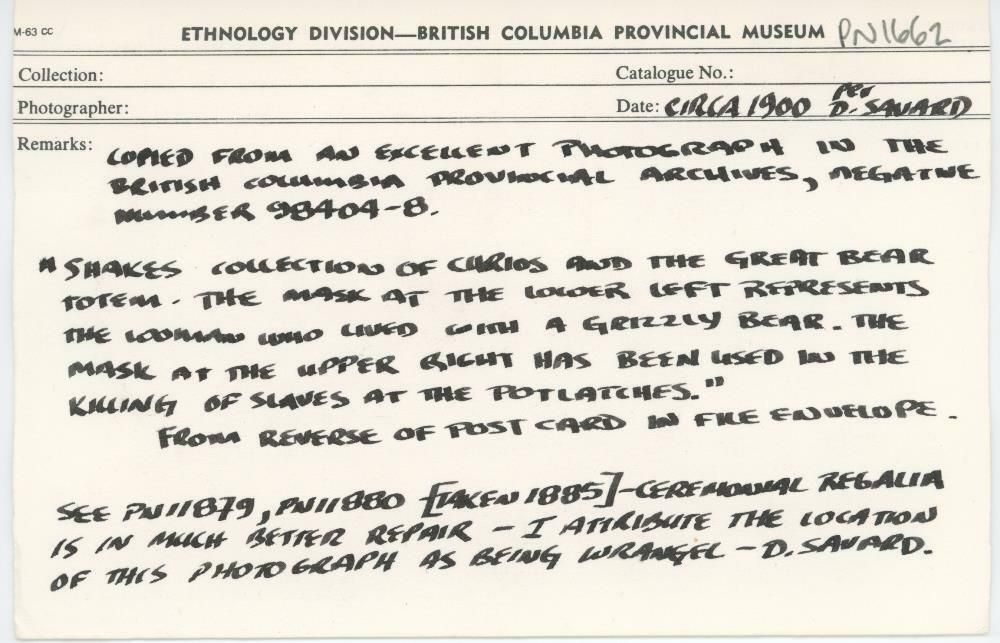 M-63 CC
ETHNOLOGY DIVISION—BRITISH COLUMBIA PROVINCIAL MUSEUM PN1662
Collection:
Catalogue No.:
Photographer:
Date: CIRCA 1900 per D. SAVARD
Remarks:
COPIED FROM AN EXCELLENT PHOTOGRAPH IN THE
BRITISH COLUMBIA PROVINCIAL ARCHIVES, NEGATIVE
NUMBER 98404-8.
"SHAKES COLLECTION OF CURIOS AND THE GREAT BEAR
TOTEM. THE MASK AT THE LOWER LEFT REPRESENTS
THE WOMAN WHO LIVED WITH A GRIZZLY BEAR. THE
MASK AT THE UPPER RIGHT HAS BEEN USED IN THE
KILLING OF SLAVES AT THE POTLATCHES."
FROM REVERSE OF POST CARD IN FILE ENVELOPE.
SEE PN11879, PN11880 [TAKEN 1885]-CEREMONIAL REGALIA
IS IN MUCH BETTER REPAIR - I ATTRIBUTE THE LOCATION
OF THIS PHOTOGRAPH AS BEING WRANGEL - D. SAVARD.